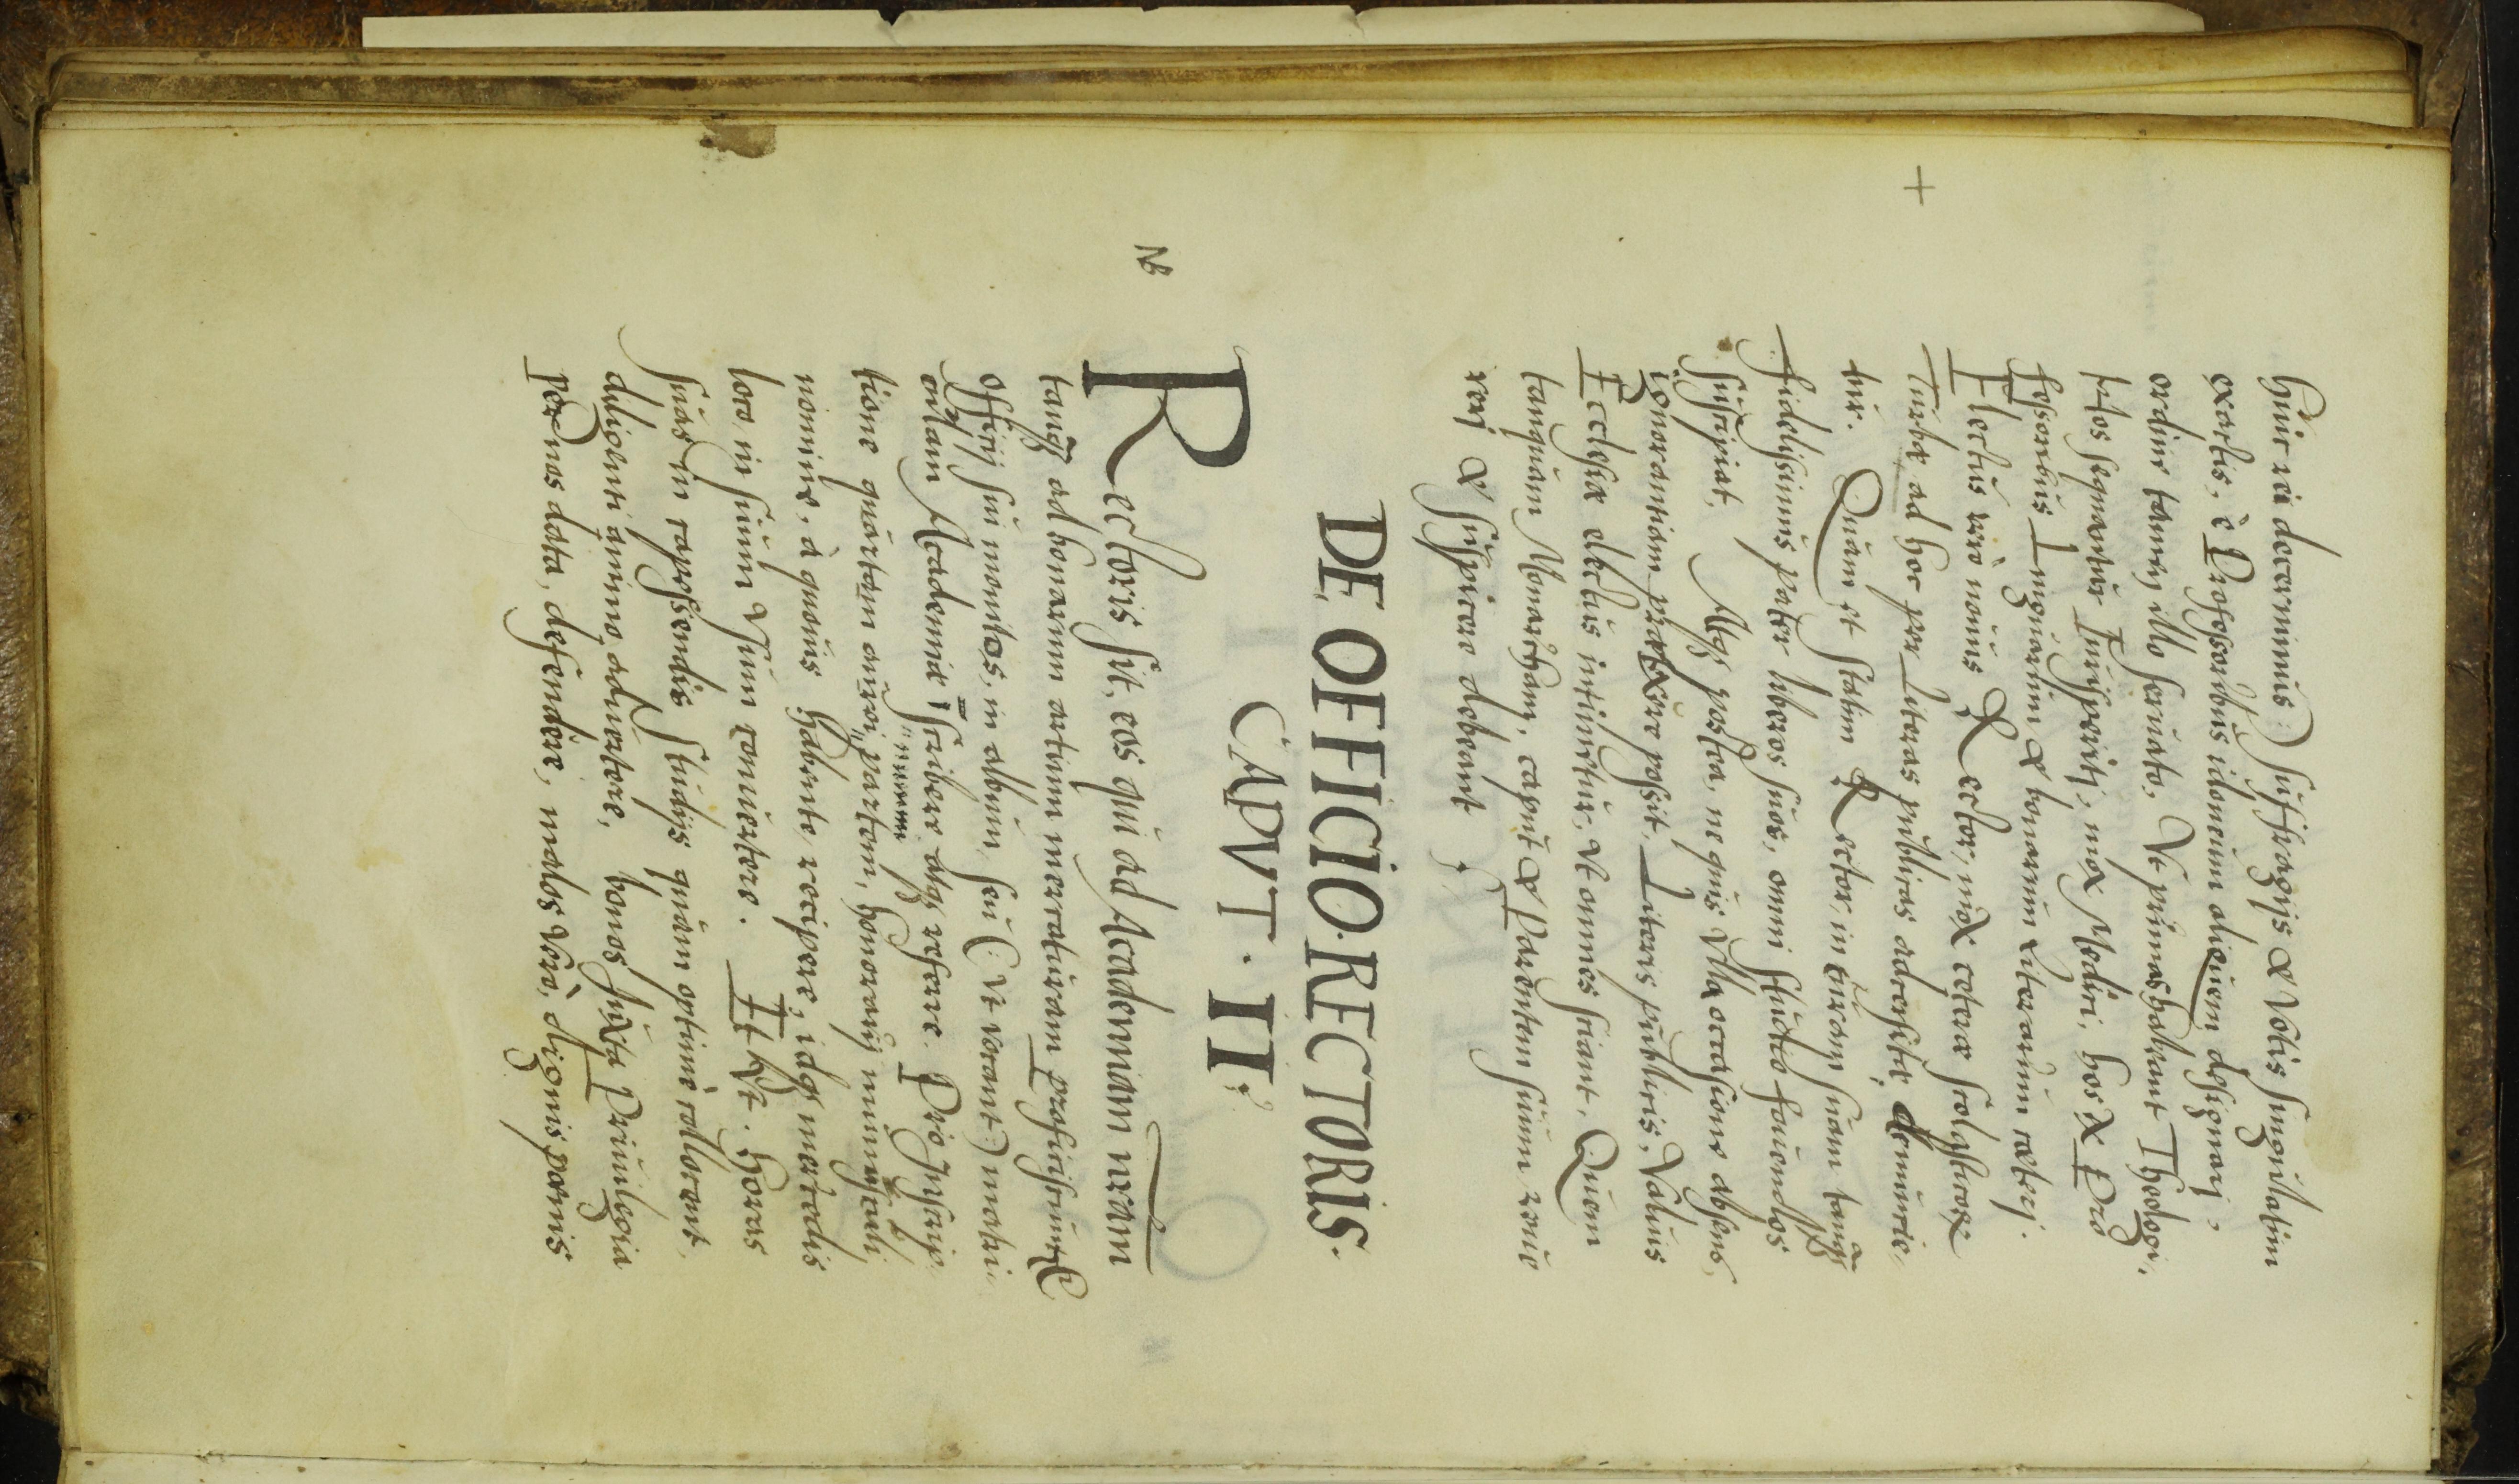 huic rei decernimus) suffragijs & Votis singulatim
exactis, è Professoribus idoneum aliquem designari,
ordine tamen illo seruato, Vt primas habeant Theologi,
Hos sequantur Iurisperiti, mox Medici, hos & Pro
fessoribus Linguarum & bonarum Literarum cæteri.
Electus verò nouus Rector, mox ceteræ scolasticæ
turbæ ad hoc per Literas publicas accersitæ, denuncie-
tur. Quam et statim Rector, in curam suam tanq̃
fidelissimus pater liberos suos, omni studio fouendos
suscipiat. Atq̃ postea, ne quis Vlla occasione absens,
ignorantiam prætexere possit, Literis publicis, Valuis
Ecclesiæ electus intimetur, Vt omnes sciant, Quem
tanquam Monarcham, caput & Parentem suum reue
reri & suspicere debeant.
DE OFFICIO RECTORIS.
CAPVT · II
NB
Rectoris sit, eos qui ad Academiam nr̃am
tanq̃ ad bonarum artium mercaturam proficiscunt̃
Officij sui monitos, in album, seu (Vt vocant) matri-
culam Academiæ scribere atq̃ referre. Pro inscrip-
tione quartam aurei partem, honorarij
nomine, à quouis habente, recipere, idq̃ mercedis
loco in suum Vsum conuertere. Et Vt horas
suas in capessendis studijs quàm optimè collocent,
diligenti animo aduertere, bonos iuxta Priuilegia
per nos data, defendere, malos Verò, dignis pœnis